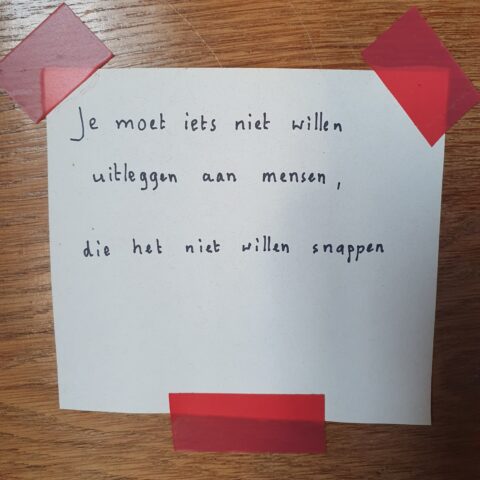 Je moet iets niet willen
uitleggen aan mensen,
die het niet willen snappen